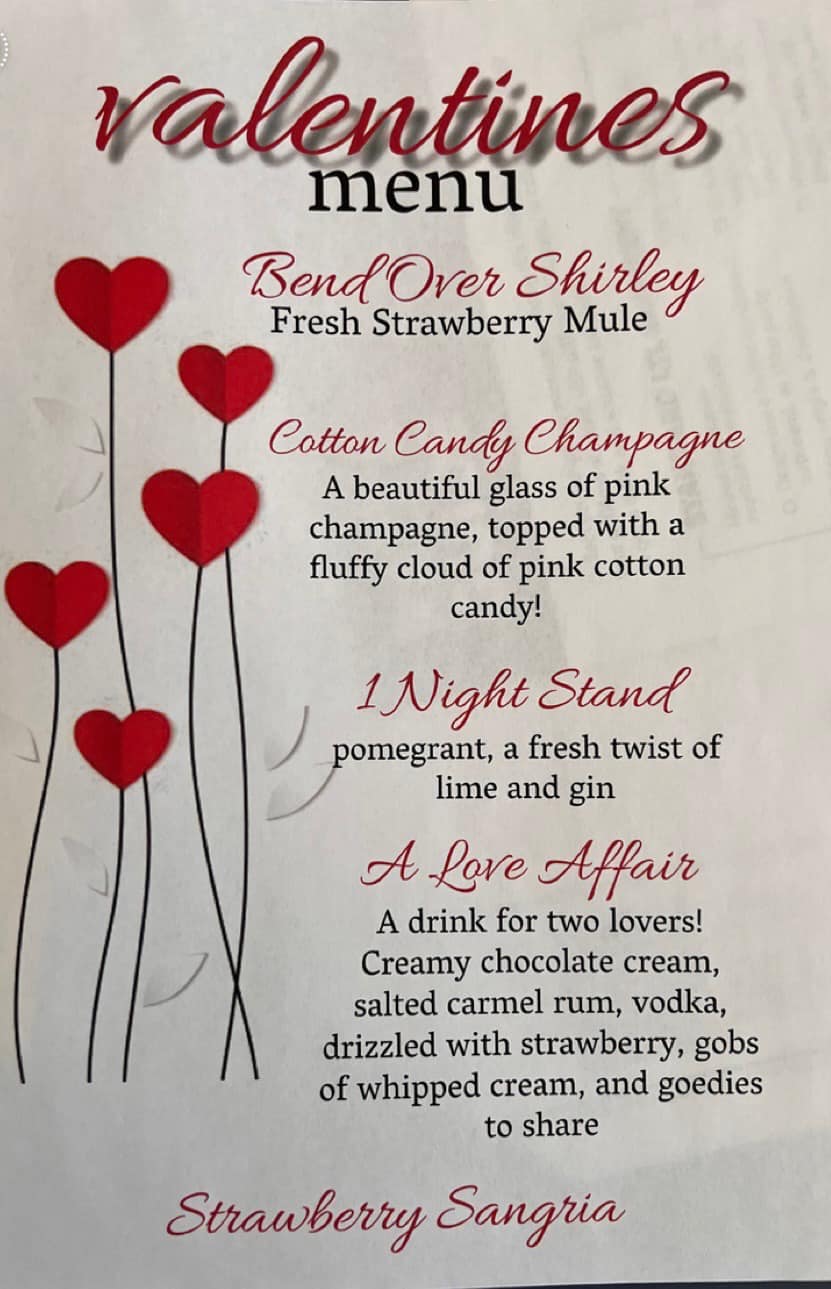 valentines
menu
Bend Over Shirley
Fresh Strawberry Mule
Cotton Candy Champagne
A beautiful glass of pink
champagne, topped with a
fluffy cloud of pink cotton
candy!
1 Night Stand
pomegrant, a fresh twist of
lime and gin
A Love Affair
A drink for two lovers!
Creamy chocolate cream,
salted carmel rum, vodka,
drizzled with strawberry, gobs
of whipped cream, and goedies
to share
Strawberry Sangria